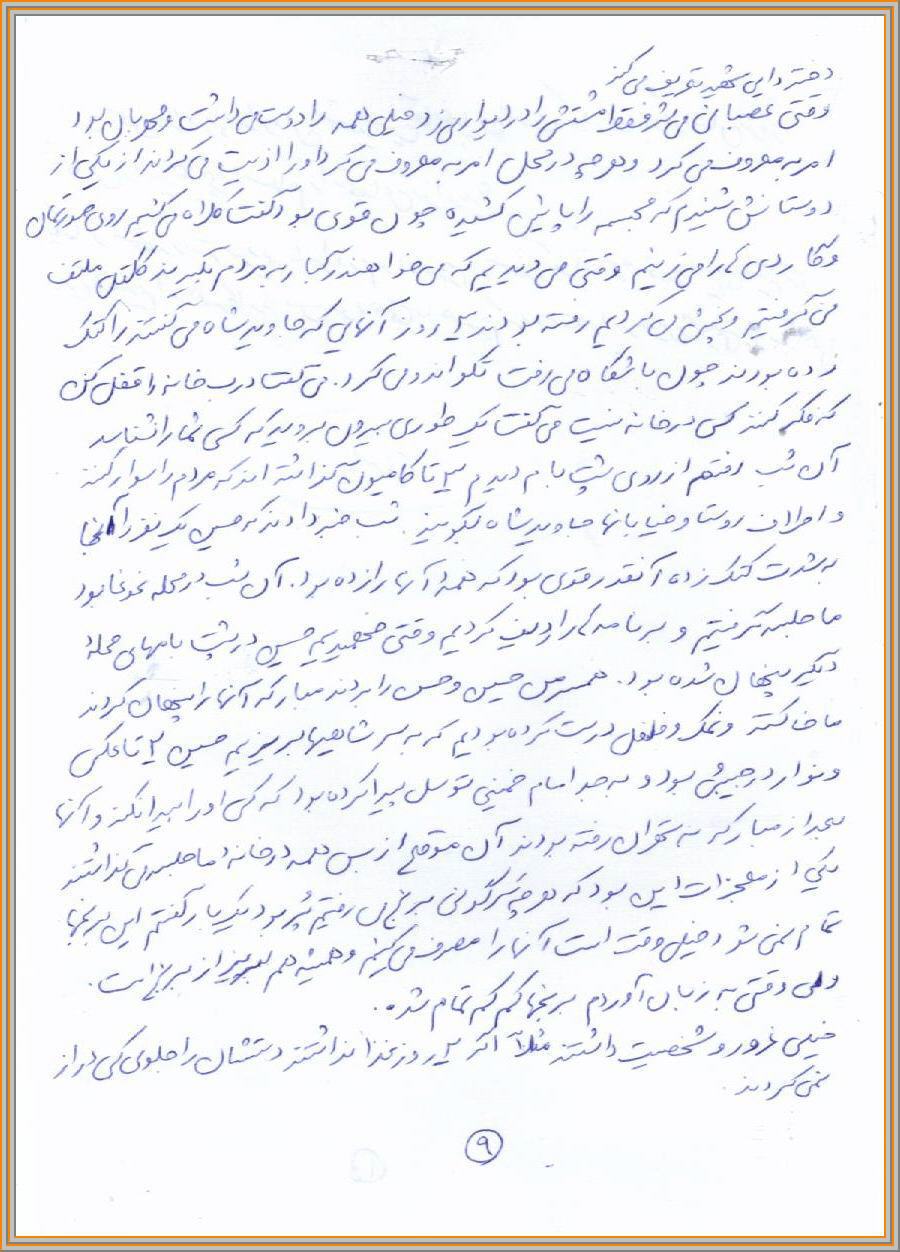 دختر دایی شهید تعریف می کند
وقتی عصبانی می شد فقط مشتش را در دیوار می زد خیلی همه را دوست می داشت و مهربان بود
امر به معروف می کرد و هر چه در محل امر به معروف می کرد او را اذیت می کردند از یکی از
دوستانش شنیدم که مجسمه را پایین کشیده چون قوی بود گفت کلاه می کشیم روی صورتمان
و کاردی ها را می زنیم وقتی می دیدیم که می خواهند به مردم بگیرند کلتل ملتف
می گرفتیم و پخش می کردیم رفته بودند ۲ روز آنهایی که جاوید شاه می گفتند را کتک
زده بودند چون باشگاه می رفت تکواندو می کرد. می گفت درب خانه را قفل کن
که فکر کنند کسی در خانه نیست می گفت یک طوری بیرون بروید که کسی شما را نشناسد
آن شب رفتم از روی پشت بام دیدم ۳ تا کامیون گذاشته اند که مردم را سوار کنند
و اطراف روستا و خیابانها جاوید شاه بگویند. شب خبر دادند که حسین یک نفر از آنها
به شدت کتک زده آنقدر قوی بود که همه آنها را زده بود. آن شب در محله غوغا بود
ما جلسه گرفتیم و برنامه ها را ردیف کردیم وقتی فهمیدیم حسین در پشت بامهای محله
دیگر پنهان شده بود. همسرم حسین و حسن را بردند مبارکه آنها را پنهان کردند
ما خاکستر و نمک و فلفل درست کرده بودیم که به سر شاهیها بریزیم حسین ۲ تا عکس
و نوار در جیبش بود و به جد امام خمینی توسل پیدا کرده بود که کسی او را پیدا نکند و آنها
بعد از مبارکه به تهران رفته بودند آن موقع از بس همه در خانه ما جلسه می گذاشتند
یکی از معجزات این بود که هر چه سر گونی برنج می رفتیم پر بود یک بار گفتم این برنجها
تمام نمی شود خیلی وقت است آنها را مصرف می کنیم و همیشه هم لبریز از برنج است.
ولی وقتی به زبان آوردم برنجها کم کم تمام شد.
خیلی غرور و شخصیت داشتند مثلاً اگر ۲ روز غذا نداشتند دستشان را جلوی کسی دراز
نمی کردند.
۹